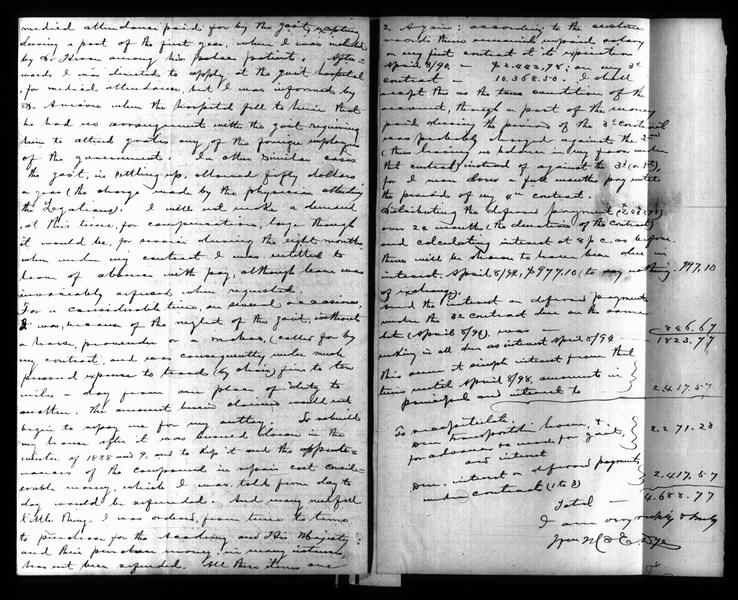 medical attendance paid for by the gov't, excepting
during a part of the first year, when I was
by Dr. Heron among his palace patients. After-
wards I was directed to apply at the gov't hospital
for medical attendance, but I was informed by
Dr. Avison when the hospital fell to him that
he had no arrangement with the gov't requiring
him to attend gratis any of the foreign employees
of the government. In other similar cases
the gov't, in settling up, allowed forty dollars
a year (the charge made by the physician attending
the Legations). I will not make a demand,
at this time, for compensation, large though
it would be, for service during the eight months
when under my contract I was entitled to
leave of absence with pay, although leave was
invariably refused when requested.
For a considerable time, on several occasions,
I was, because of the neglect of the gov't, without
a horse, provender or a mapoo, (called for by
my contract), and was consequently under much
personal expense to travel (by chair) five to ten
miles a day from one place of duty to
another. The amount herein claimed would not
begin to repay me for my outlay. To rebuild
my house after it was burned down in the
winter of 1888 and 9, and to keep it and the appurte-
nances of the compound in repair cost consid-
erable money, which I was told from day to
day would be refunded. And many useful
little things I was ordered, from time to time,
to purchase for the academy and His Majesty;
and their purchase money, in many instances
has not been refunded. All these items are
2 Again: according to the
months there remained unpaid salary
on my first contract at its expiration
April 8/90, — $2,442.78; on my 3d
contract — 10,368.50. I shall
accept this as the true condition of the
account, though a part of the money
paid during the period of the 3d contract
was probably charged against the 2nd
(there leaving no balance in my favor under
that contract) instead of against the 3d
for I was down a few months pay until
the period of my 4th contract.
Distributing the deferred payment
over 24 months (the duration of the contract)
and calculating interest at 8 p.c. as before
there will be shown to have been due in
interest, April 8/94, $977.10 (to say nothing 997.10
of exchange).
And the interest on deferred payments
under the 3d contract due on the same
date (April 8/94), was — 826.67
making in all due as interest April 8/94 1823.77
this sum at simple interest from that
time until April 8/98, amounts in
principal and interest to 2,417.57
To recapitulate:
Due transport'n home, &
for advances made for gov't,
and interest 2,271.20
Due interest on deferred payments
under contracts (1 to 3) 2,417.57
Total — 4,688.77
I am very resp'ly & truly
Wm McE. Dye